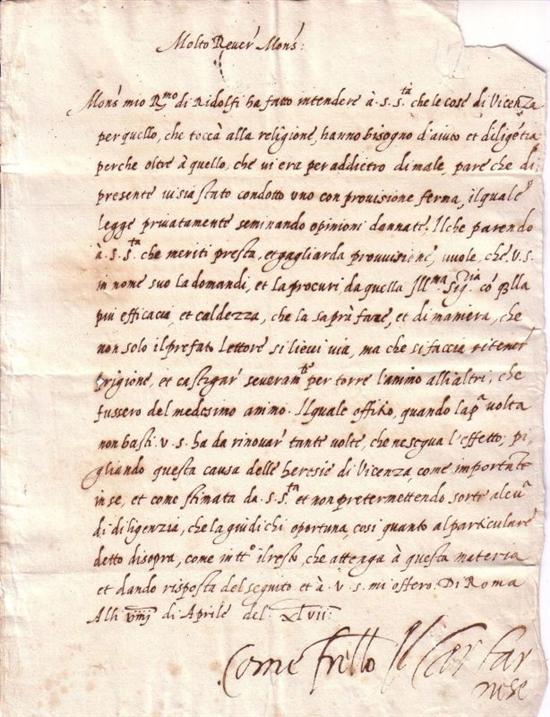 Molto Rever Mons:
Mons mio R.mo di Ridolfi ha fatto intendere à S. S.ta che le cose di Vicenza
per quello, che tocca alla religione, hanno bisogno d'aiuto et diligētia
perche oltre à quello, che vi era per addietro di male, pare che di
presente vi sia stato condotto uno con provisione ferma, il quale
legge privatamente seminando opinioni dannate. Il che parendo
à S. S.ta che meriti presta, et gagliarda provvisione, vuole, che V.S.
in nome suo la domandi, et la procuri da quella Ill.ma Sig.ria cō q̄lla
piu efficacia, et caldezza, che la saprà fare, et di maniera, che
non solo il prefato lettore si lievi via, ma che si faccia ritener
prigione, et castigar severam.te per torre l'animo alli altri, che
fussero del medesimo animo. Il quale offitio, quando la p.a volta
non basti V.S. ha da rinovar tante volte, che ne segua l'effetto; pi
gliando questa causa delle heresie di Vicenza, come importante
in se, et come stimata da S. S.ta et non pretermettendo sorte alcu.a
di diligenzia, che la giudichi oportuna, cosi quanto al particulare
detto disopra, come in tt.o il resto, che attenga à questa materia
et dando risposta del seguito et à V.S. mi offero. Di Roma
Alli viiij di Aprile del xlvii.
Come frello Il Car Far
nese